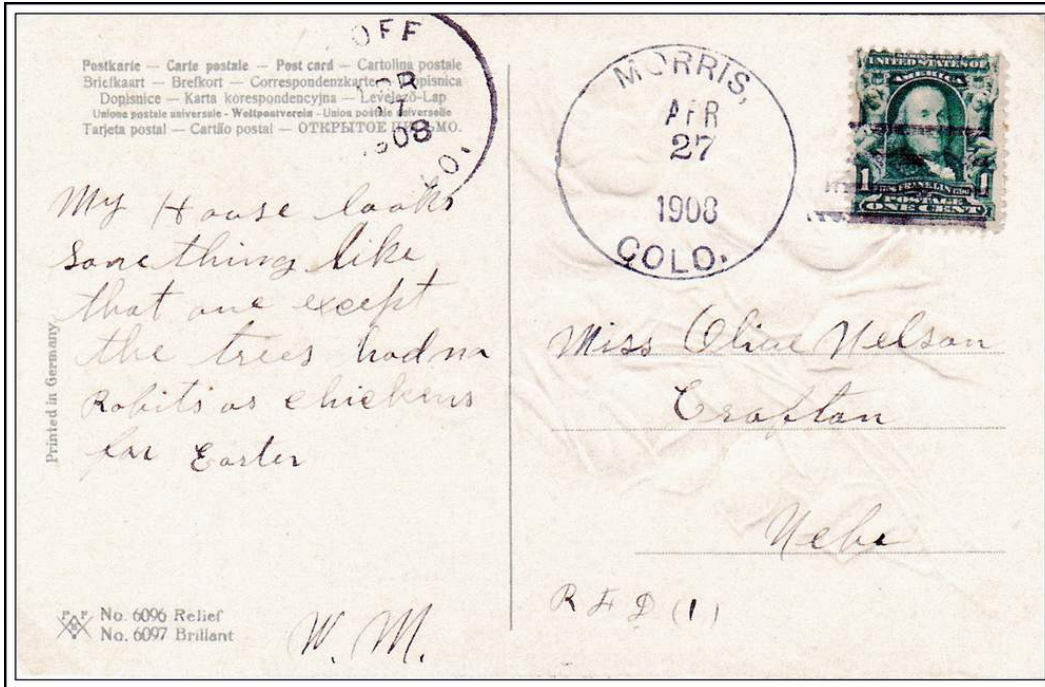 Postkarte — Carte postale — Post card — Cartolina postale
Briefkaart — Brefkort — Correspondenzkarte — Dopisnica
Dopisnice — Karta korespondencyjna — Levelező-Lap
Unione postale universale - Weltpostverein - Union postale universelle
Tarjeta postal — Cartão postal — ОТКРЫТОЕ ПИСЬМО.
OFF
1908
MORRIS,
APR
27
1908
COLO.
UNITED STATES OF
AMERICA
1 FRANKLIN 1
POSTAGE
ONE CENT
My House looks
Some thing like
that one except
the trees had no
Rabits or chickens
for Easter
W. M.
Miss Olive Nelson
Crofton
Nebr
R F D (1)
Printed in Germany
No. 6096 Relief
No. 6097 Brillant